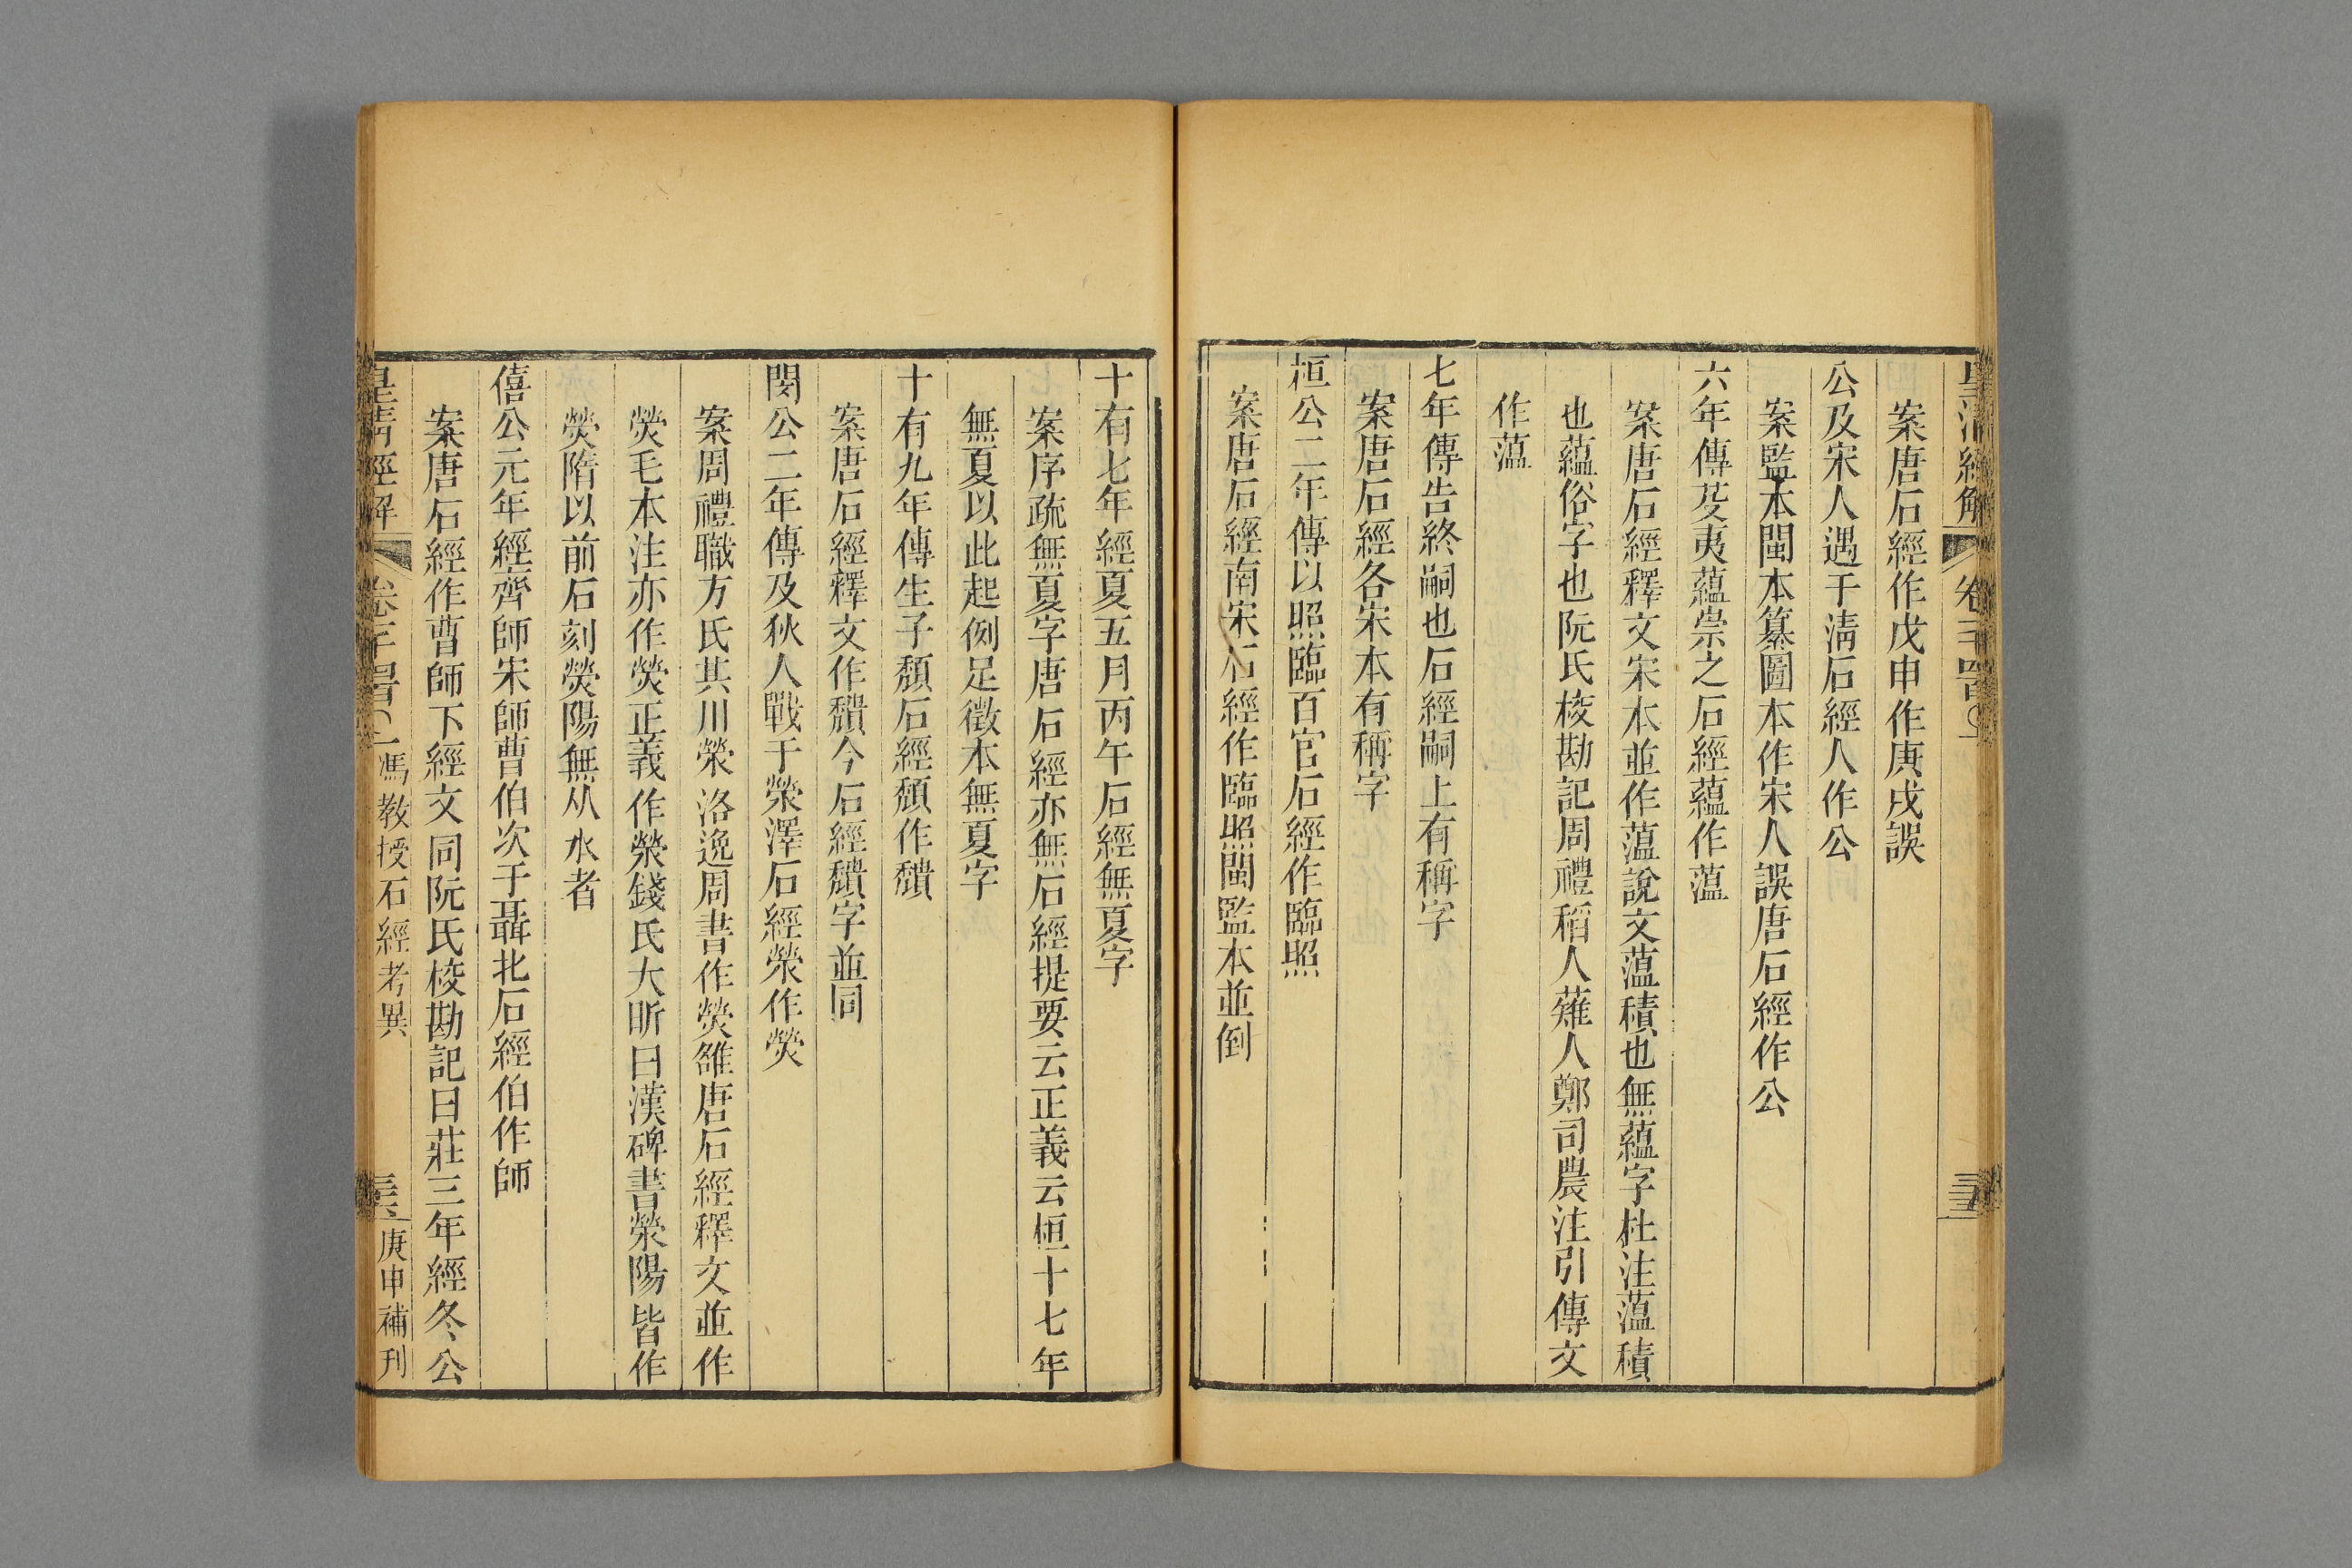 皇清經解 卷
案唐石經作戊申作庚戌誤
公及宋人遇于清石經人作公
案監本閩本纂圖本作宋人誤唐石經作公
六年傳芟夷蘊崇之石經蘊作薀
案唐石經釋文宋本並作薀說文薀積也無蘊字杜注薀積
也蘊俗字也阮氏校勘記周禮稻人薙人鄭司農注引傳文
作薀
七年傳告終嗣也石經嗣上有稱字
案唐石經各宋本有稱字
桓公二年傳以照臨百官石經作臨照
案唐石經南宋石經作臨照閩監本並倒
十有七年經夏五月丙午石經無夏字
案序疏無夏字唐石經亦無石經提要云正義云桓十七年
無夏以此起例足徵本無夏字
十有九年傳生子頹石經頹作穨
案唐石經釋文作穨今石經穨字並同
閔公二年傳及狄人戰于滎澤石經滎作熒
案周禮職方氏其川滎洛逸周書作熒雒唐石經釋文並作
熒毛本注亦作熒正義作滎錢氏大昕曰漢碑書滎陽皆作
熒隋以前石刻熒陽無从水者
僖公元年經齊師宋師曹伯次于聶北石經伯作師
案唐石經作曹師下經文同阮氏校勘記曰莊三年經冬公
皇清經解 卷 馮教授石經考異 庚申補刊